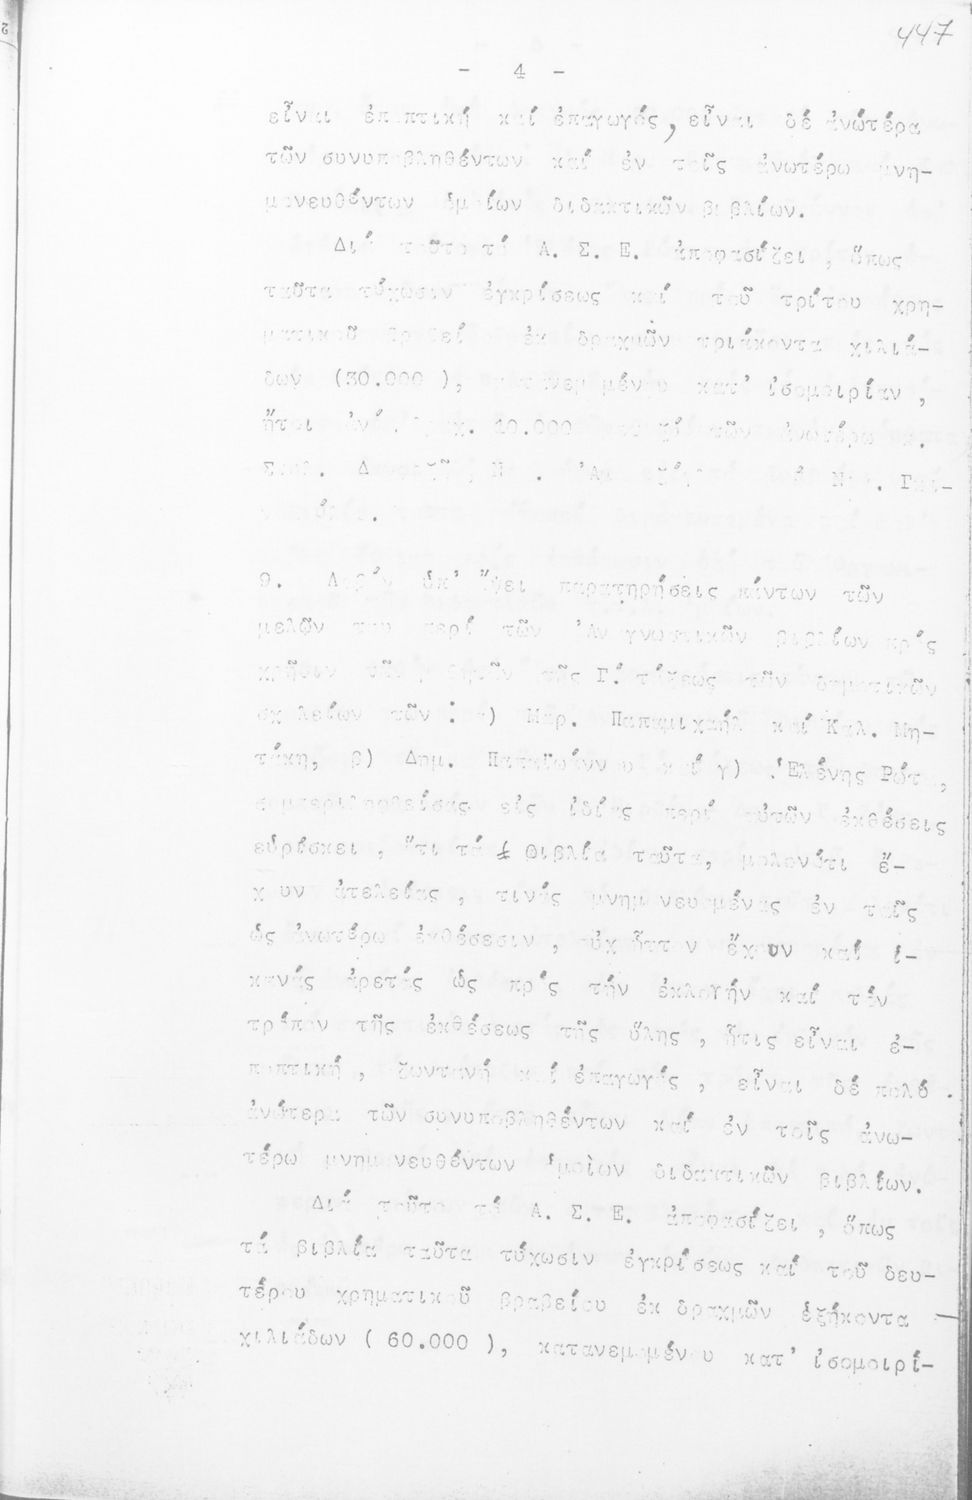 447
- 4 -
εἶναι ἐποπτική καί ἐπαγωγός, εἶναι δέ ἀνώτέρα
τῶν συνυποβληθέντων καί ἐν τοῖς ἀνωτέρω μνη-
μονευθέντων ὁμοίων διδακτικῶν βιβλίων.
Διά τοῦτο τό Α. Σ. Ε. ἀποφασίζει, ὅπως
ταῦτα τύχωσιν ἐγκρίσεως καί τοῦ τρίτου χρη-
ματικοῦ βραβείου ἐκ δραχμῶν τριάκοντα χιλιά-
δων (30.000 ), κατανεμομένου κατ' ἰσομοιρίαν,
ἤτοι ἀνά 10.000 τῶν ἀνωτέρω
9. Λαβόν ὑπ' ὄψει παρατηρήσεις πάντων τῶν
μελῶν του περί τῶν Ἀναγνωστικῶν βιβλίων πρός
χρῆσιν τῶν μαθητῶν τῆς Γ΄. τάξεως τῶν δημοτικῶν
σχολείων τῶν : α) Μαρ. Παπαμιχαήλ καί Καλ. Μη-
τάκη, β) Δημ. Παπαϊωάννου καί γ) Ἑλένης Ρώτα,
συμπεριληφθείσας εἰς ἰδίας περί αὐτῶν ἐκθέσεις
εὑρίσκει, ὅτι τά βιβλία ταῦτα, μολονότι ἔ-
χουν ἀτελείας, τινάς μνημονευομένας ἐν ταῖς
ὡς ἀνωτέρω ἐκθέσεσιν, οὐχ ἧττον ἔχουν καί ἱ-
κανάς ἀρετάς ὡς πρός τήν ἐκλογήν καί τόν
τρόπον τῆς ἐκθέσεως τῆς ὕλης, ἥτις εἶναι ἐ-
ποπτική, ζωντανή καί ἐπαγωγός, εἶναι δέ πολύ
ἀνώτερα τῶν συνυποβληθέντων καί ἐν τοῖς ἀνω-
τέρω μνημονευθέντων ὁμοίων διδακτικῶν βιβλίων.
Διά τοῦτο τό Α. Σ. Ε. ἀποφασίζει, ὅπως
τά βιβλία ταῦτα τύχωσιν ἐγκρίσεως καί τοῦ δευ-
τέρου χρηματικοῦ βραβείου ἐκ δραχμῶν ἑξήκοντα
χιλιάδων ( 60.000 ), κατανεμομένου κατ' ἰσομοιρί-